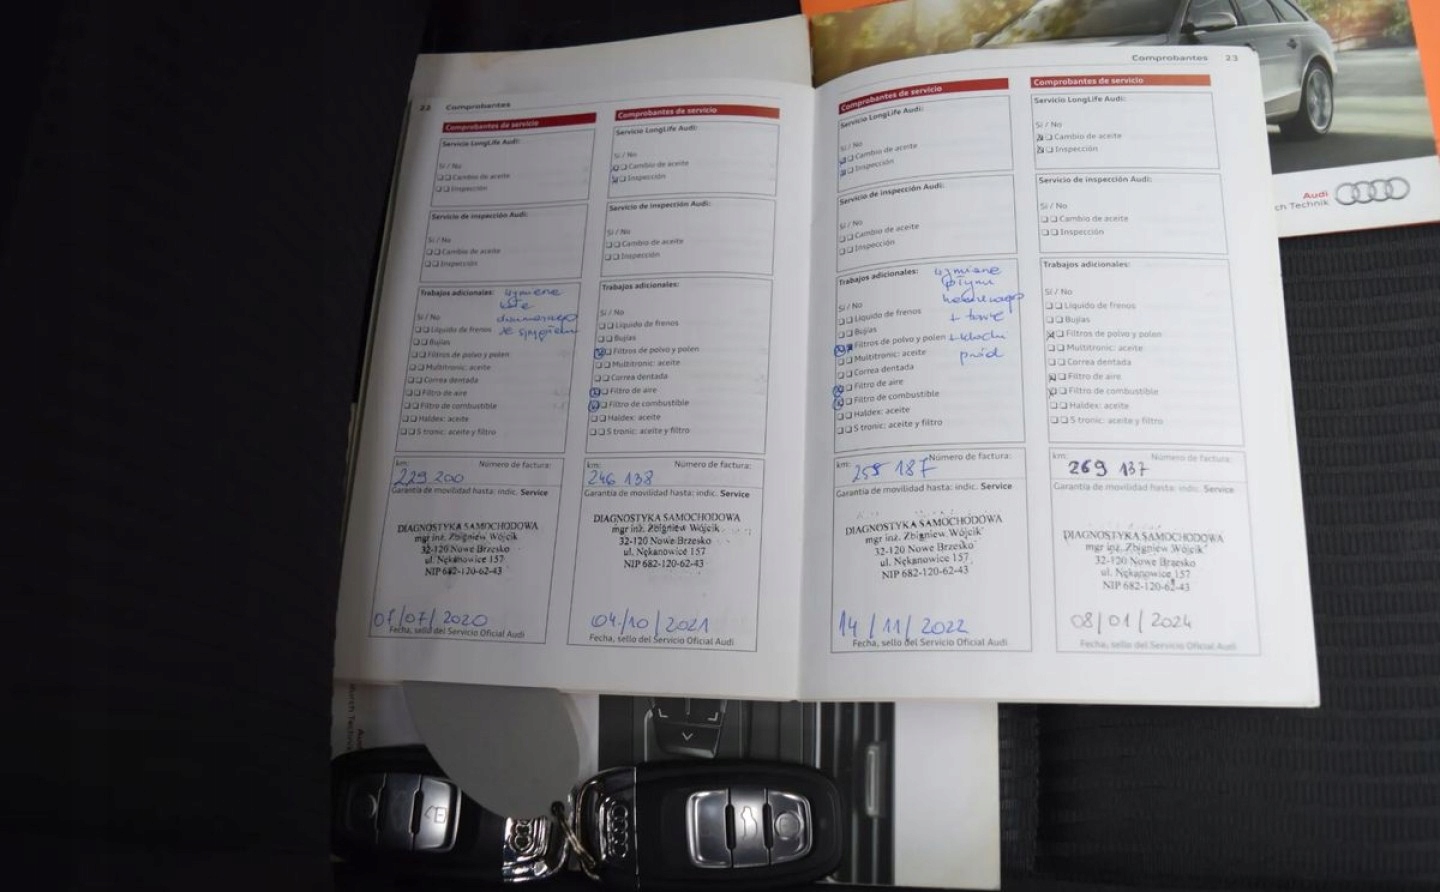 22 Comprobantes
Comprobantes de servicio
Servicio LongLife Audi:
Sí / No
Cambio de aceite
Inspección
Servicio de inspección Audi:
Sí / No
Cambio de aceite
Inspección
Trabajos adicionales: wymiana
koła
dwumasowego
Sí / No
Líquido de frenos ze sprzęgłem
Bujías
Filtros de polvo y polen
Multitronic: aceite
Correa dentada
Filtro de aire
Filtro de combustible
Haldex: aceite
S tronic: aceite y filtro
km: Número de factura:
229 200
Garantía de movilidad hasta: indic. Service
DIAGNOSTYKA SAMOCHODOWA
mgr inż. Zbigniew Wójcik
32-120 Nowe Brzesko
ul. Nękanowice 157
NIP 682-120-62-43
07/07/2020
Fecha, sello del Servicio Oficial Audi
Comprobantes de servicio
Servicio LongLife Audi:
Sí / No
Cambio de aceite
Inspección
Servicio de inspección Audi:
Sí / No
Cambio de aceite
Inspección
Trabajos adicionales:
Sí / No
Líquido de frenos
Bujías
Filtros de polvo y polen
Multitronic: aceite
Correa dentada
Filtro de aire
Filtro de combustible
Haldex: aceite
S tronic: aceite y filtro
km: Número de factura:
246 138
Garantía de movilidad hasta: indic. Service
DIAGNOSTYKA SAMOCHODOWA
mgr inż. Zbigniew Wójcik
32-120 Nowe Brzesko
ul. Nękanowice 157
NIP 682-120-62-43
04/10/2021
Fecha, sello del Servicio Oficial Audi
Comprobantes 23
Comprobantes de servicio
Servicio LongLife Audi:
Sí / No
Cambio de aceite
Inspección
Servicio de inspección Audi:
Sí / No
Cambio de aceite
Inspección
Trabajos adicionales: wymiana
płynu
Sí / No hamulcowego
Líquido de frenos + tarcze
Bujías
Filtros de polvo y polen + klocki
Multitronic: aceite przód
Correa dentada
Filtro de aire
Filtro de combustible
Haldex: aceite
S tronic: aceite y filtro
km: Número de factura:
255 187
Garantía de movilidad hasta: indic. Service
DIAGNOSTYKA SAMOCHODOWA
mgr inż. Zbigniew Wójcik
32-120 Nowe Brzesko
ul. Nękanowice 157
NIP 682-120-62-43
14/11/2022
Fecha, sello del Servicio Oficial Audi
Comprobantes de servicio
Servicio LongLife Audi:
Sí / No
Cambio de aceite
Inspección
Servicio de inspección Audi:
Sí / No
Cambio de aceite
Inspección
Trabajos adicionales:
Sí / No
Líquido de frenos
Bujías
Filtros de polvo y polen
Multitronic: aceite
Correa dentada
Filtro de aire
Filtro de combustible
Haldex: aceite
S tronic: aceite y filtro
km: Número de factura:
269 137
Garantía de movilidad hasta: indic. Service
DIAGNOSTYKA SAMOCHODOWA
mgr inż. Zbigniew Wójcik
32-120 Nowe Brzesko
ul. Nękanowice 157
NIP 682-120-62-43
08/01/2024
Fecha, sello del Servicio Oficial Audi
Audi
ch Technik